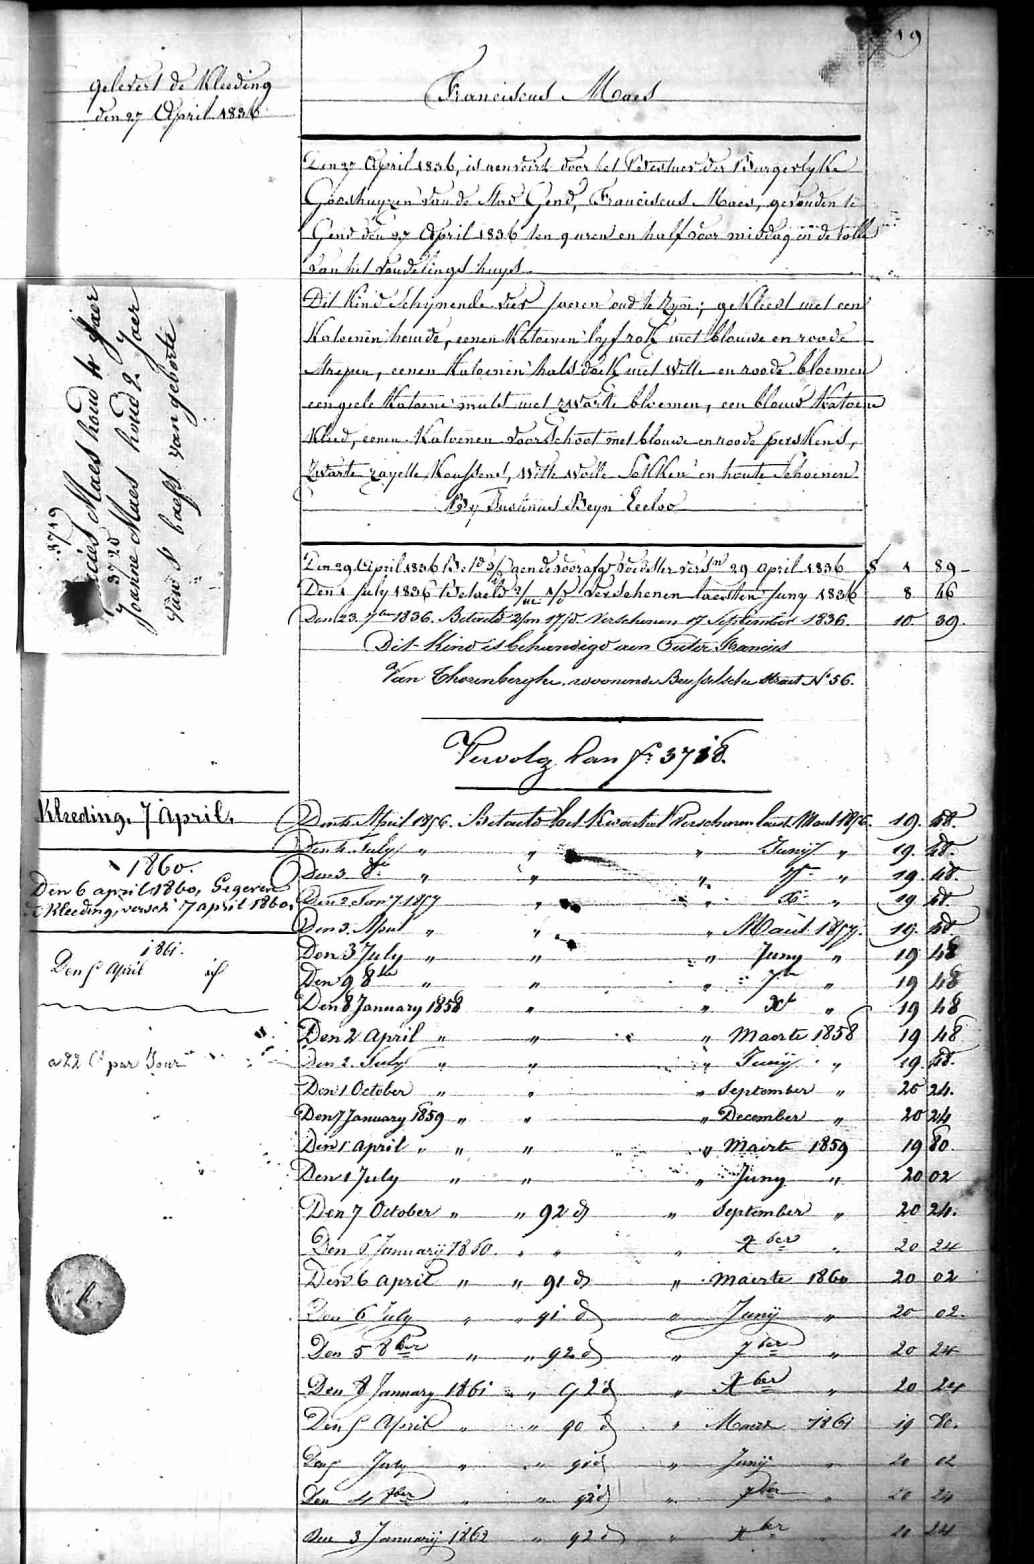 19
gelevert de Kleeding
den 27 April 1836
Franciscus Maes
Den 27 April 1836, is aenveird door het Bestuer der Burgerlyke
Godshuyzen van de Stad Gend, Franciscus Maes, gevonden te
Gend den 27 April 1836 ten 9 uren en half voor middag in de Rolle
van het vondelings huys
Dit Kind Schynende vier jaeren oud te zyn; gekleed met een
Katoenen hemde, eenen Katoenen lyfrok met blauwe en roode
strepen, eenen Katoenen halsdoek met witte en roode bloemen
een geele Katoene muts met zwarte bloemen, een blauw Katoene
Kleed, eenen Katoenen voorschoot met blauwe en roode perskens,
zwarte zayette Koussens, witte wolle Sokken en houte Schoenen
By Justinus Beyn Eecloo
3719
Maes houd 4 Jaer
3720
Joanne Maes houd 2 Jaer
van geborte
Den 29 April 1836 29 April 1836 1 89
Den 1 July 1836 Betaeld Verschenen laesten Juny 1836 8 46
Den 23 7ber 1836. Betaeld Verschenen 17 September 1836. 10. 39.
Dit Kind is behandigd aen Pieter Francies
Van Thorenberghe, woonende Brusselsche Straet No 56.
Vervolg van fo 3718.
Kleeding. 7 April.
1860.
Den 6 april 1860, Gegeven
Kleeding, versch 7 april 1860.
1861.
Den 5 April
a 22 Cs par Jour
Den 4 April 1856. Betaeld het Kwartael Verschenen laest Maert 1856. 19. 48.
Den 4 July " " " Junij " 19. 48.
Den 3. 8bre " " " 7bre " 19 48.
Den 2 Janry 1857 " " Xbre " 19 48.
Den 3. April " " " Maert 1857. 19. 48.
Den 3 July " " " Juny " 19 48
Den 9 8bre " " " 7bre " 19 48
Den 8 January 1858 " " Xbre " 19 48
Den 2 April " " " Maerte 1858 19 48
Den 2. July " " " Junij " 19. 48.
Den 1 October " " " September " 20 24.
Den 7 January 1859 " " " December " 20 24
Den 1 April " " " Maerte 1859 19 80.
Den 1 July " " " Juny " 20 02
Den 7 October " " 92 d " September " 20 24.
Den 6 January 1860. " " " Xber " 20 24
Den 6 april " " 91 d " Maerte 1860 20 02
Den 6 July " " 91 d " Junij " 20 02.
Den 5 8ber " " 92 d " 7ber " 20 24
Den 8 January 1861 " " 92 d " Xber " 20 24
Den 5 April " " 90 d " Maert 1861 19 80.
Den 5 July " " 91 d " Junij " 20 02
Den 4 8ber " " 92 d " 7ber " 20 24
Den 3 Januarij 1862 " 92 d " Xber " 20 24